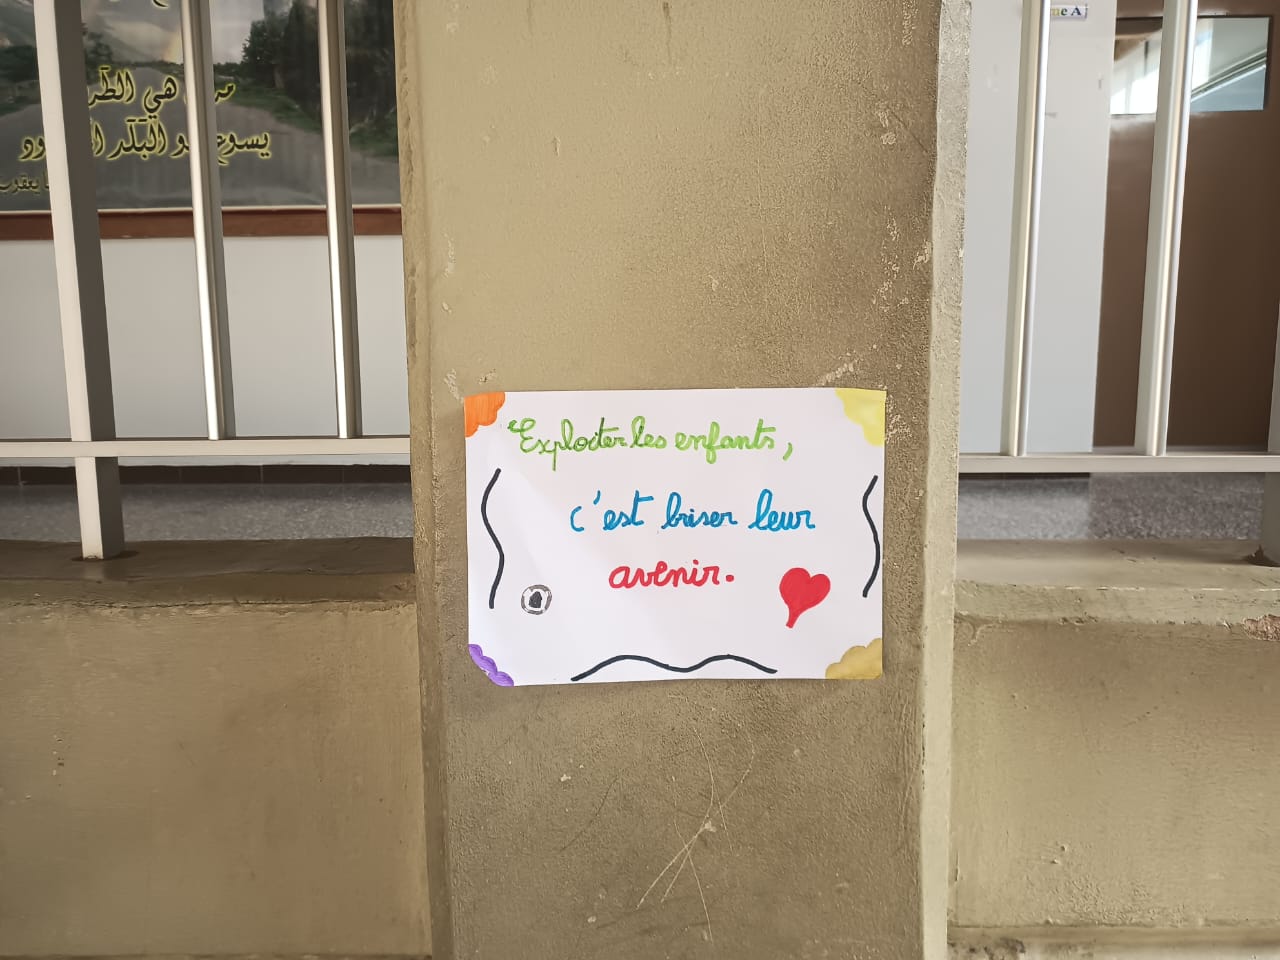 هي الطّر
يسوع هو البَلَد
يعقوب
me A
Exploiter les enfants,
c'est briser leur
avenir.